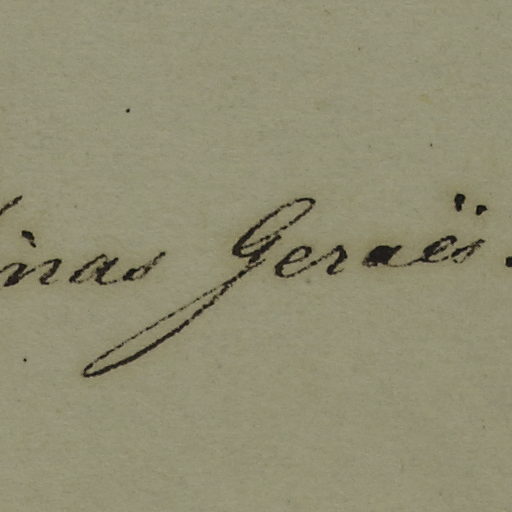 inas Geraës.